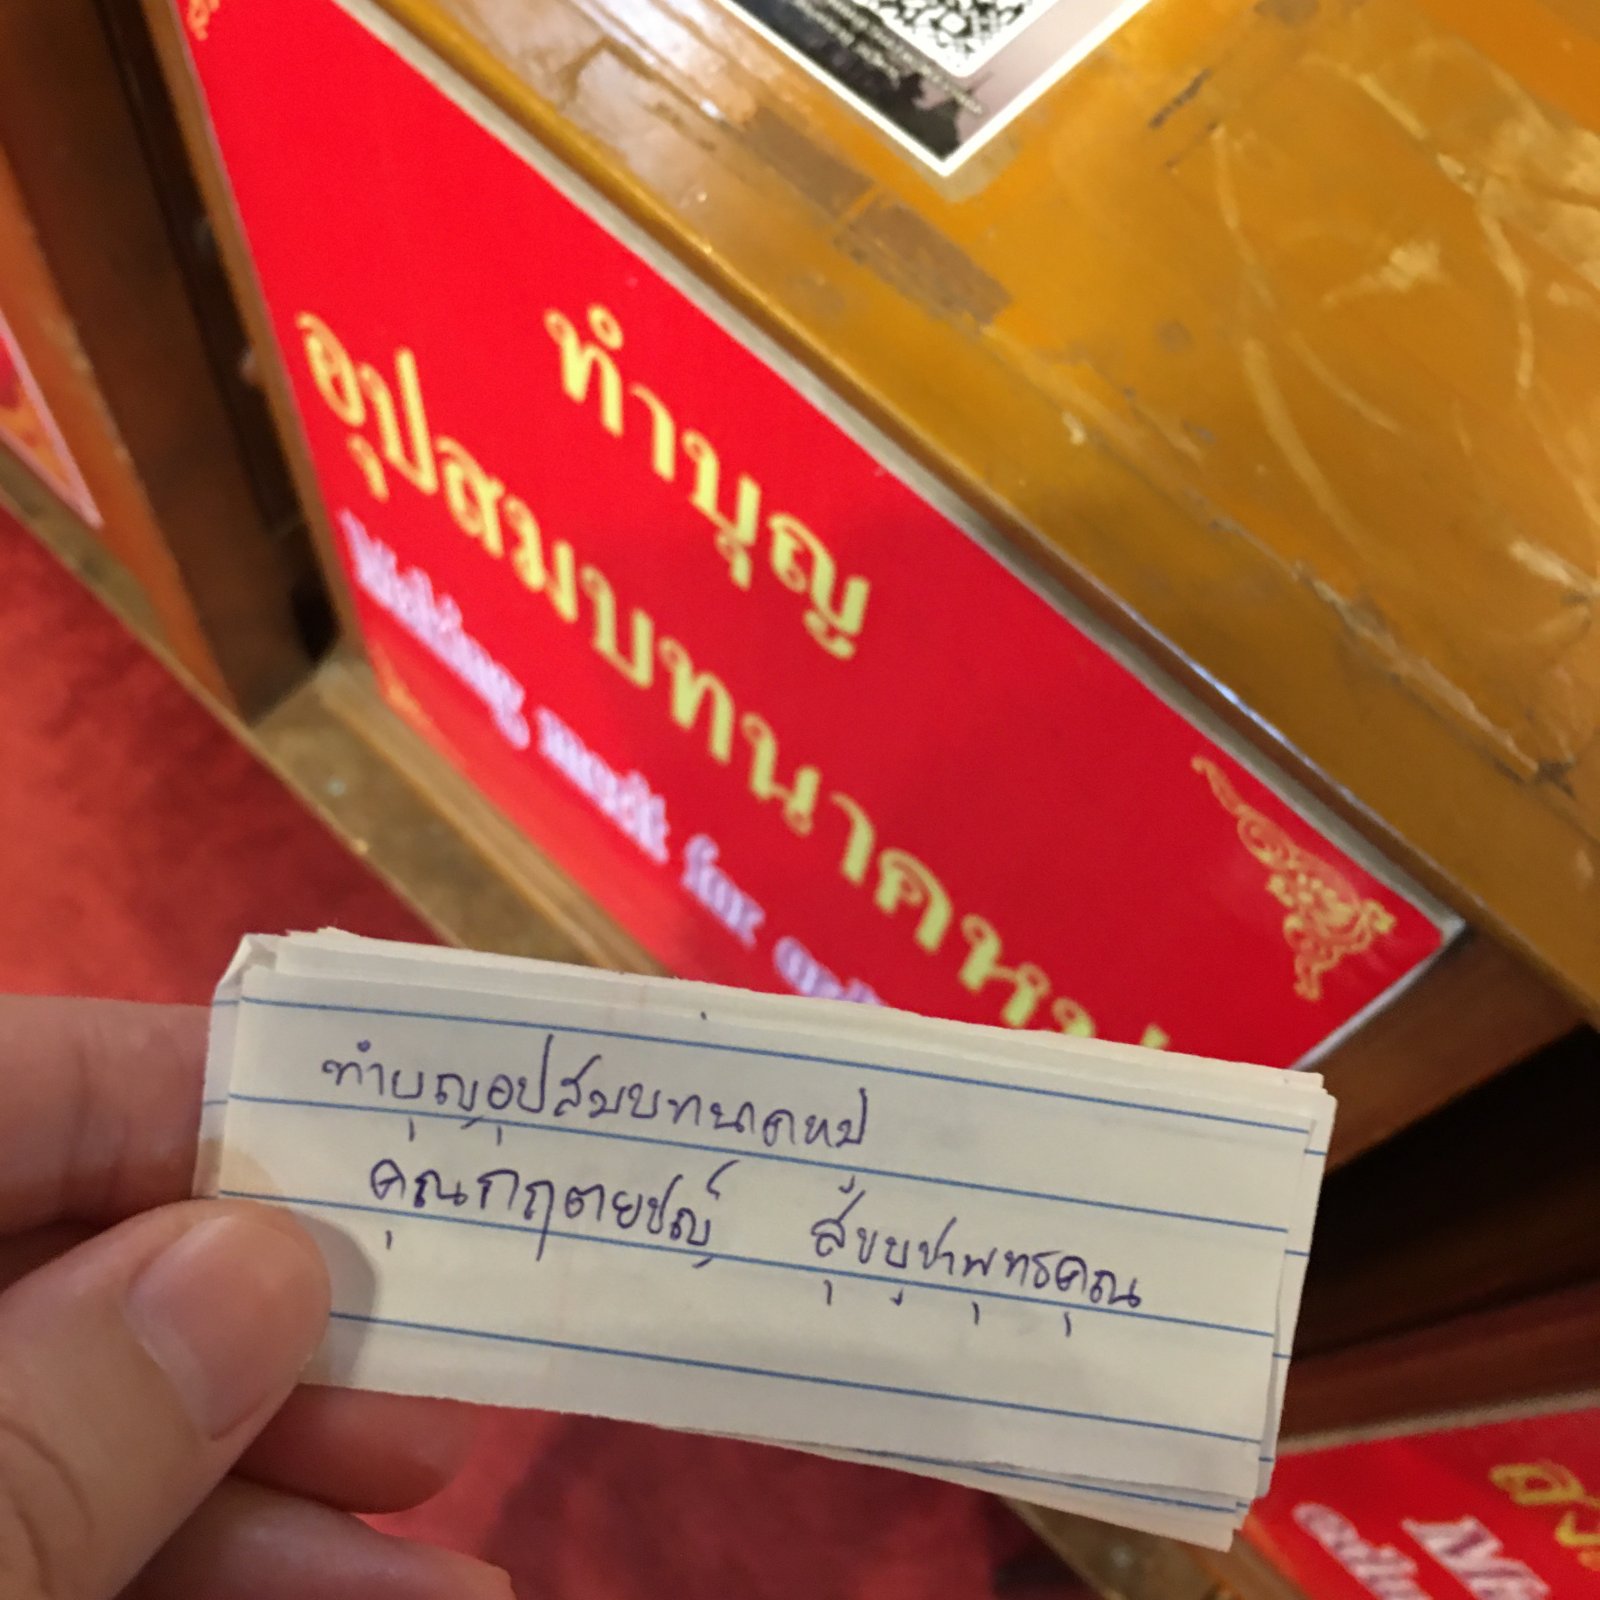 ทำบุญ
อุปสมบทนาคหมู่
Making merit for
ทำบุญอุปสมบทนาคหมู่
คุณกฤตยชญ์ สุ้ขบูชาพุทธคุณ